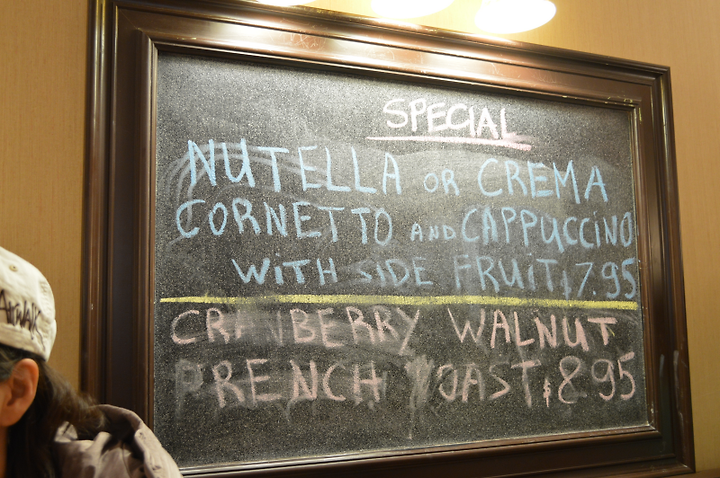 SPECIAL
NUTELLA OR CREMA
CORNETTO AND CAPPUCCINO
WITH SIDE FRUIT $7.95
CRANBERRY WALNUT
FRENCH TOAST $8.95